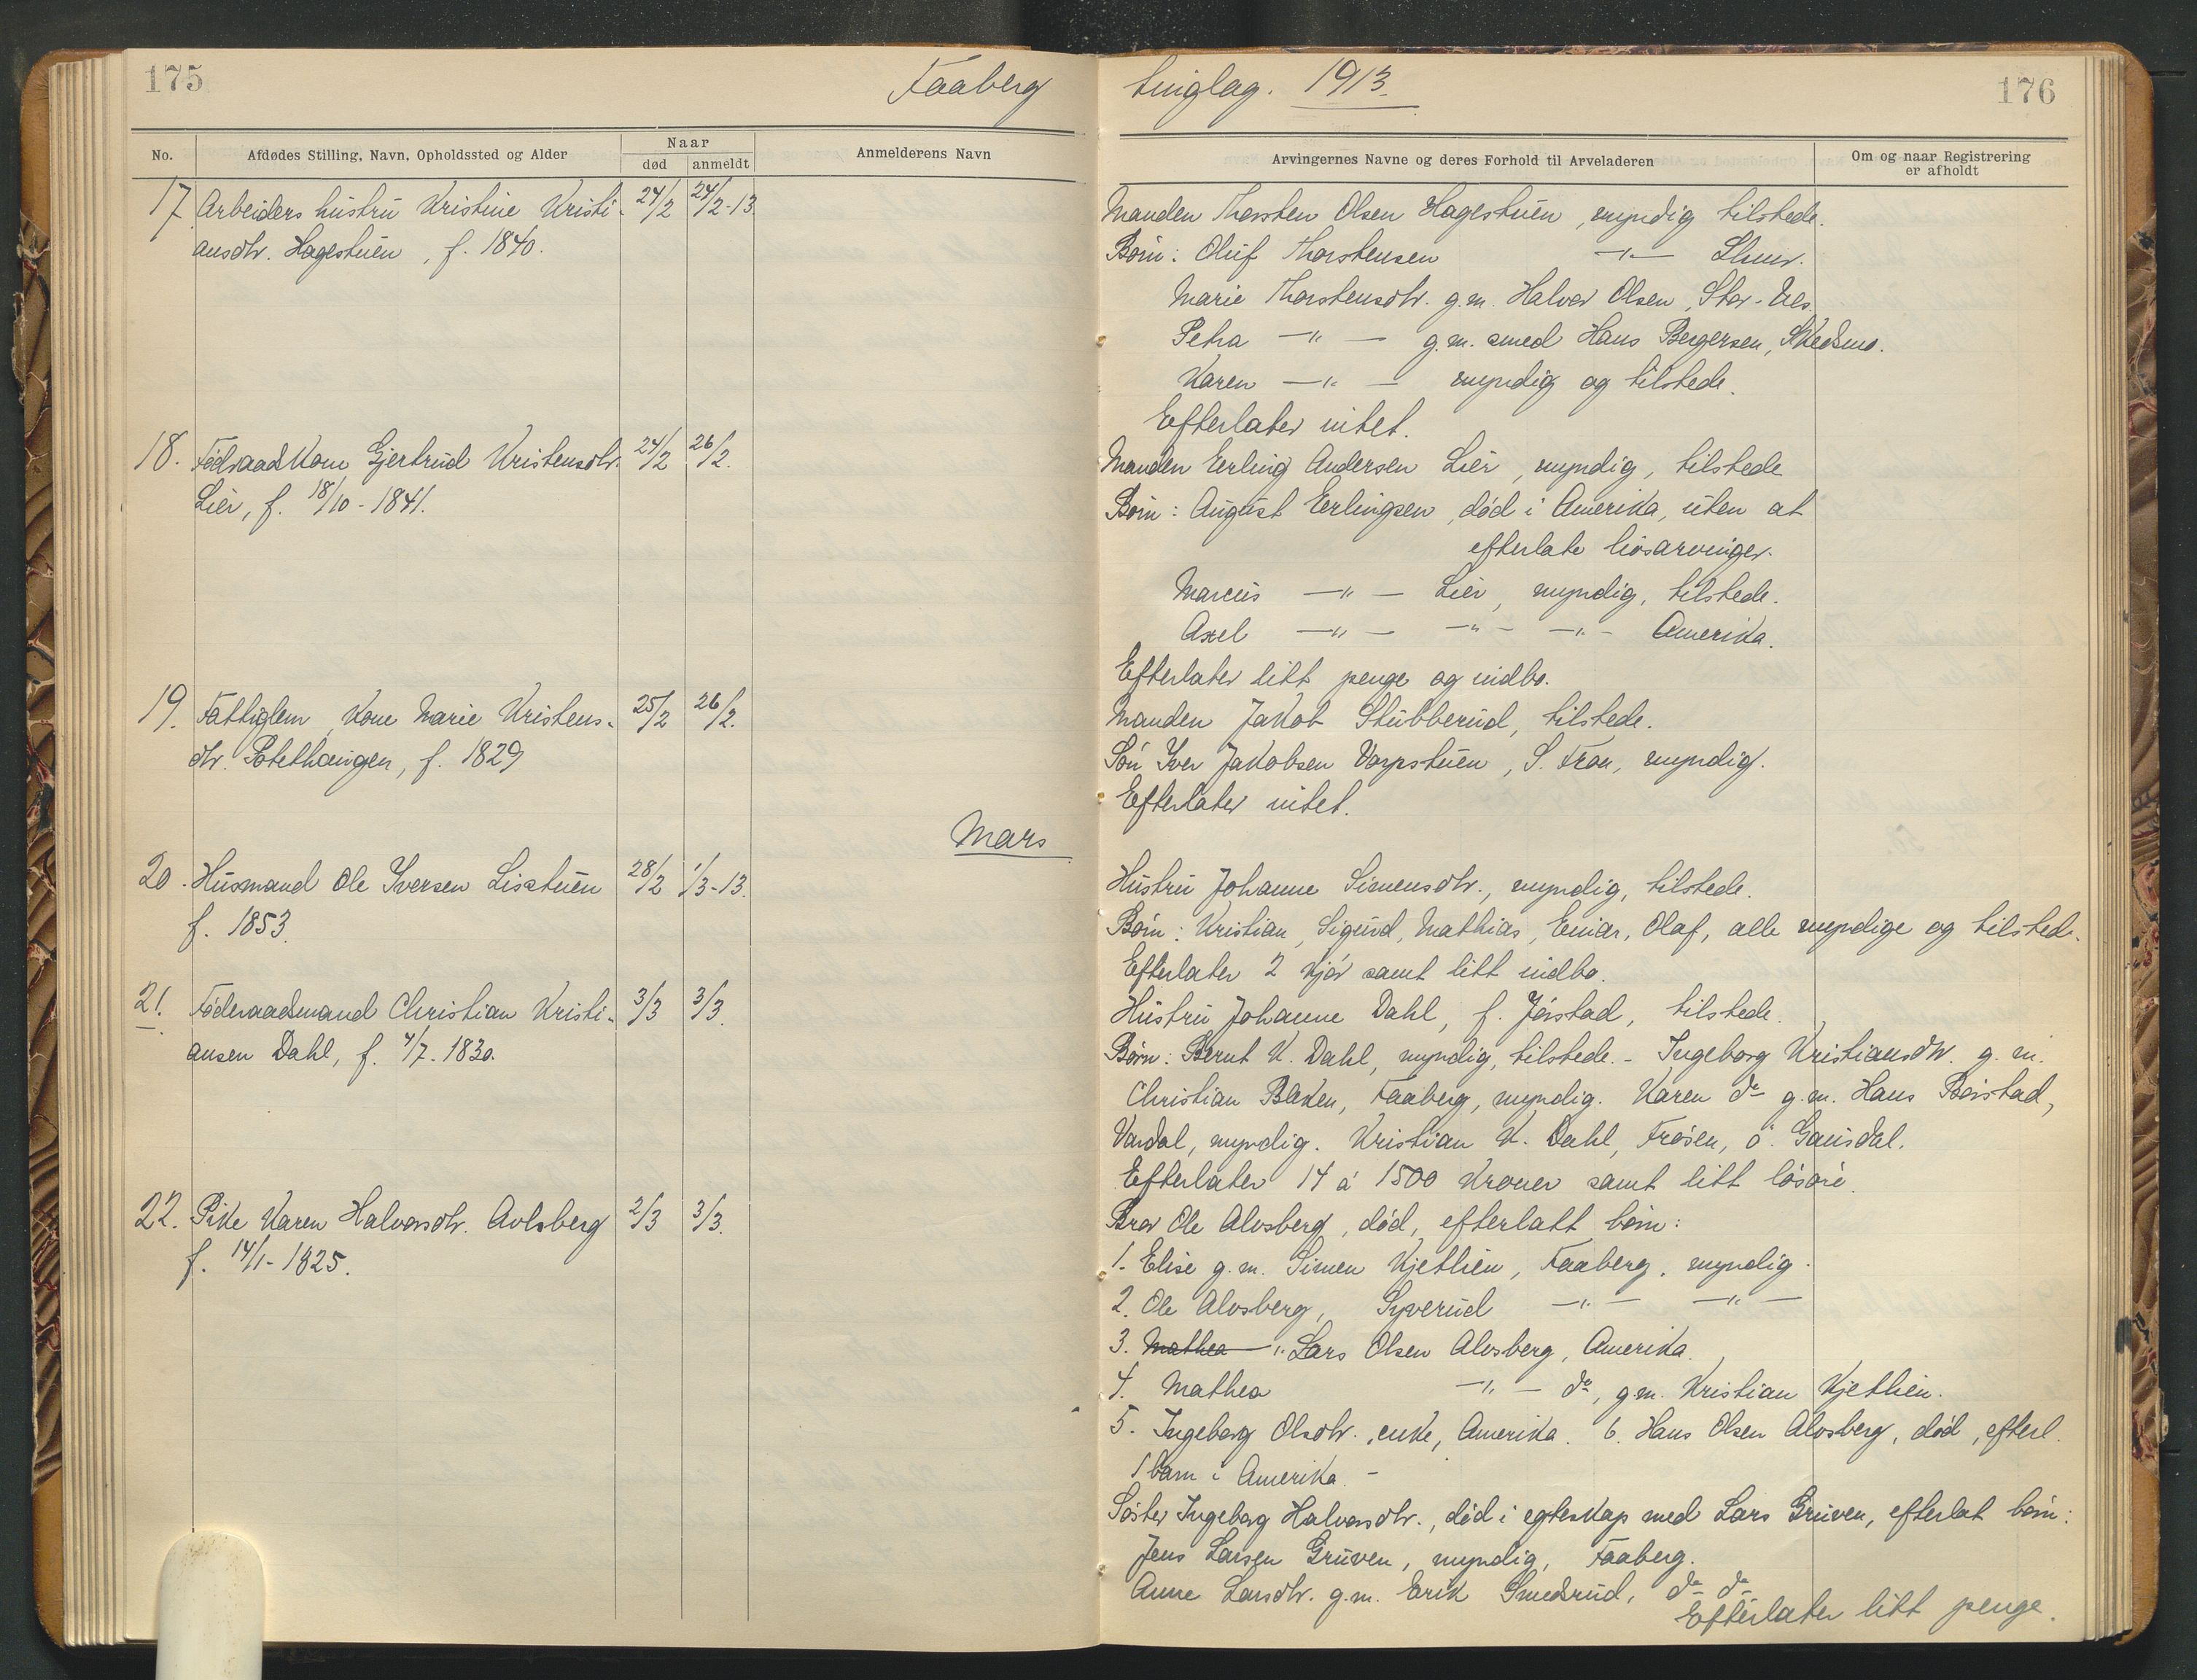 175
Faaberg
No.
Afdødes Stilling, Navn, Opholdssted og Alder
Naar
død
anmeldt
Anmelderens Navn
17. Arbeiders hustru Kristine Kristi- 24/2 24/2-13.
ansdtr. Hagestuen, f. 1840.
18. Föderaadskone Gjertrud Kristensdtr. 24/2 26/2.
Lier, f. 18/10-1841.
19. Fattiglem, kone Marie Kristens- 25/2 26/2.
dtr. Potethaugen, f. 1829
Mars
20. Husmand Ole Iversen Lisstuen 28/2 1/3-13.
f. 1853.
21. Föderaadsmand Christian Kristi- 3/3 3/3.
ansen Dahl, f. 4/7-1830.
22. Pike Karen Halvorsdtr. Avlsberg 2/3 3/3.
f. 14/1-1825.
tinglag. 1913.
176
Arvingernes Navne og deres Forhold til Arveladeren
Om og naar Registrering
er afholdt
Manden Thorsten Olsen Hagestuen, myndig tilstede.
Börn: Oluf Thorstensen —"—
Marie Thorstensdtr. g.m. Halvor Olsen, Stor-
Petra —"— g.m. smed Hans Bergersen, Skedsmo.
Karen —"— myndig og tilstede.
Efterlater intet.
Manden Erling Andersen Lier, myndig, tilstede
Börn: August Erlingsen, död i Amerika, uten at
efterlate livsarvinger.
Marcus —"— Lier, myndig, tilstede.
Axel —"— —"— —"— Amerika.
Efterlater litt penge og indbo.
Manden Jakob Stubberud, tilstede.
Sön Iver Jakobsen Varpstuen, S. Fron, myndig.
Efterlater intet.
Hustru Johanne Simensdtr., myndig, tilstede.
Börn: Kristian, Sigurd, Mathias, Einar, Olaf, alle myndige og tilstede.
Efterlater 2 kjör samt litt indbo.
Hustru Johanne Dahl, f. Jörstad, tilstede.
Börn: Bernt K. Dahl, myndig, tilstede. - Ingeborg Kristiansdtr. g. m.
Christian Bakken, Faaberg, myndig. Karen do g.m. Hans Börstad,
Vardal, myndig. Kristian K. Dahl, Frösen, ö. Gausdal.
Efterlater 14 á 1500 kroner samt litt lösöre.
Bror Ole Alvsberg, död, efterlatt börn:
1. Elise g.m. Simen Kjetlien, Faaberg, myndig.
2. Ole Alvsberg, Syverud —"— —"—
3. Mathea —" Lars Olsen Alvsberg, Amerika.
4. Mathea —"— do, g.m. Kristian Kjetlien.
5. Ingeborg Olsdtr., enke, Amerika. 6. Hans Olsen Alvsberg, död, efterl.
1 barn i Amerika. -
Söster Ingeborg Halvorsdtr., död i egteskap med Lars Gruven, efterlat börn:
Jens Larsen Gruven, myndig, Faaberg.
Anne Larsdtr. g.m. Erik Smedsrud, do do
Efterlater litt penge.